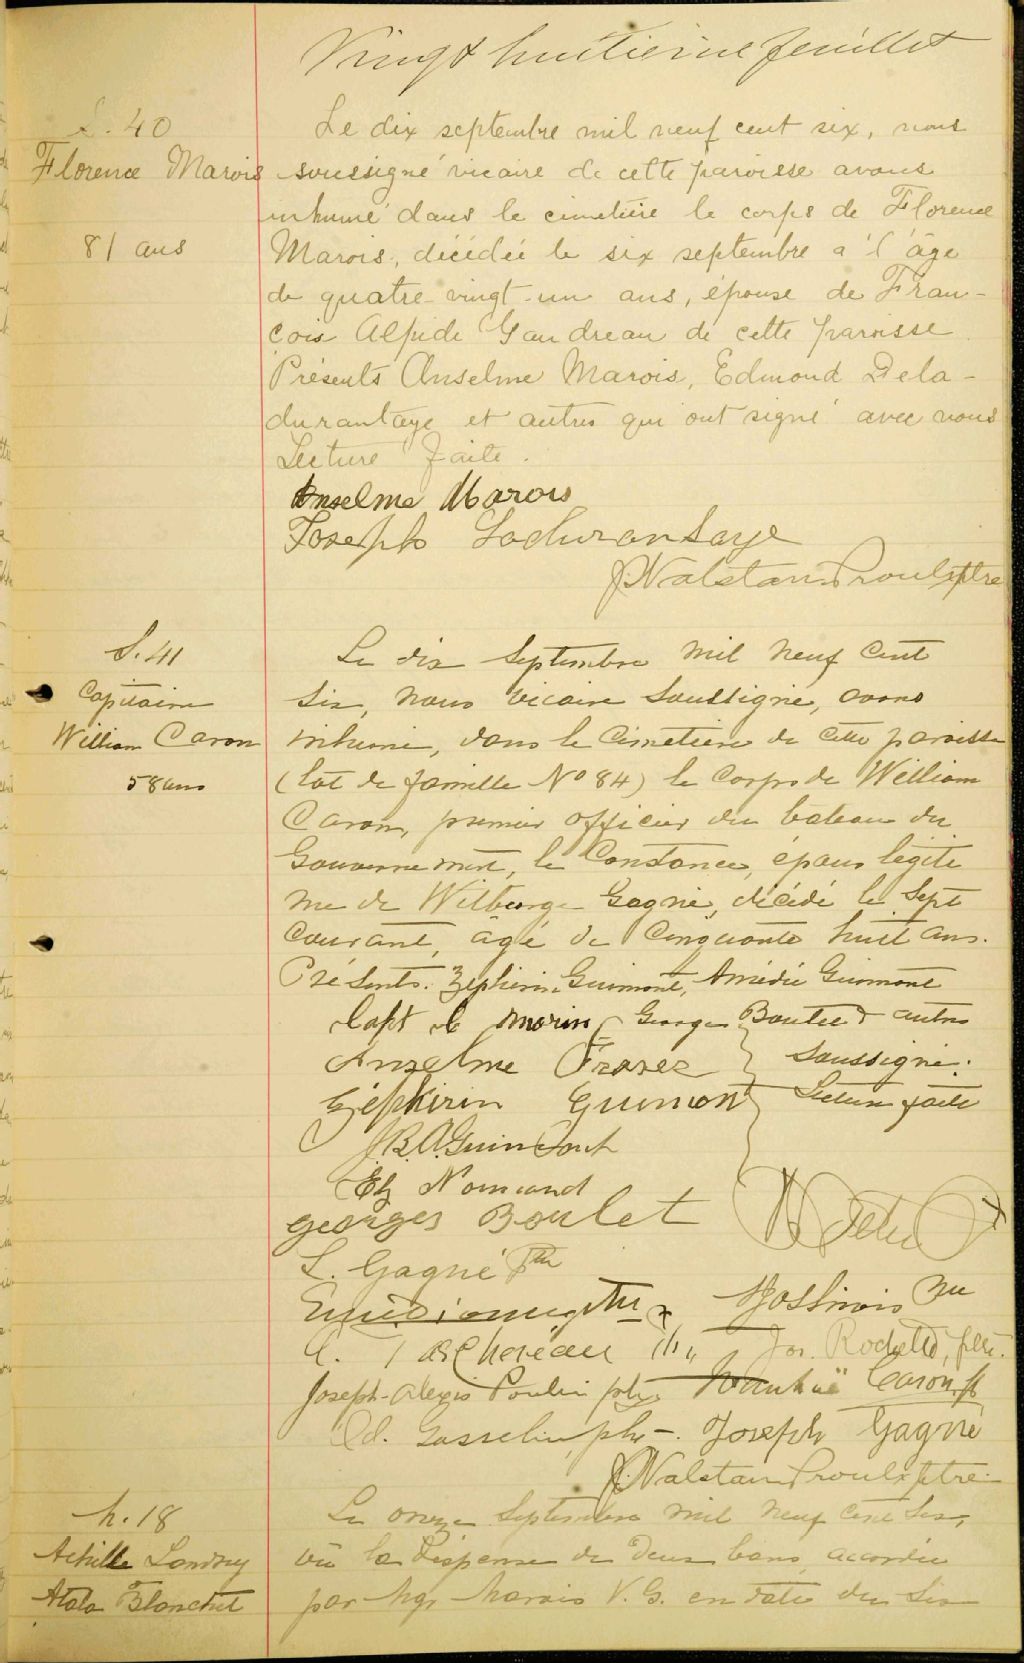 Vingt huitième feuillet
S. 40
Florence Marois
81 ans
Le dix septembre mil neuf cent six, nous
soussigné vicaire de cette paroisse avons
inhumé dans le cimetière le corps de Florence
Marois, décédée le six septembre a l'âge
de quatre-vingt-un ans, épouse de Fran-
çois Alpide Gaudreau de cette paroisse.
Présents Anselme Marois, Edmond Dela-
durantaye et autres qui ont signé avec nous
Lecture faite.
Anselme Marois
Joseph Ladurantaye
J. Walstan Proulx ptre
S. 41
Capitaine
William Caron
58 ans
Le dix Septembre mil neuf cent
six, nous vicaire soussigné, avons
inhumé, dans le cimetière de cette paroisse
(lot de famille No 84) le corps de William
Caron, premier officier du bateau du
Gouvernement, le Constance, époux légiti
me de Wilburge Gagné, décédé le sept
courant, âgé de cinquante huit ans.
Présents: Zéphirin Guimont, Amédée Guimont
Capt Morin Georges Boulet & autres
Anselme soussignés.
Zéphirin Guimont Lecture faite
J.B.A. Guimont
Normand
Georges Boulet
L. Gagné Ptre
Jos. Rochette, ptre.
Joseph-Alexis Poulin ptre Caron
Ed. Gosselin, ptre. Joseph Gagné
J. Walstan Proulx ptre.
M. 18
Achille Landry
Atala Blanchet
Le onze Septembre mil neuf cent six,
vu la dispense de deux bans accordée
par Mgr Marois V. G. en date du six